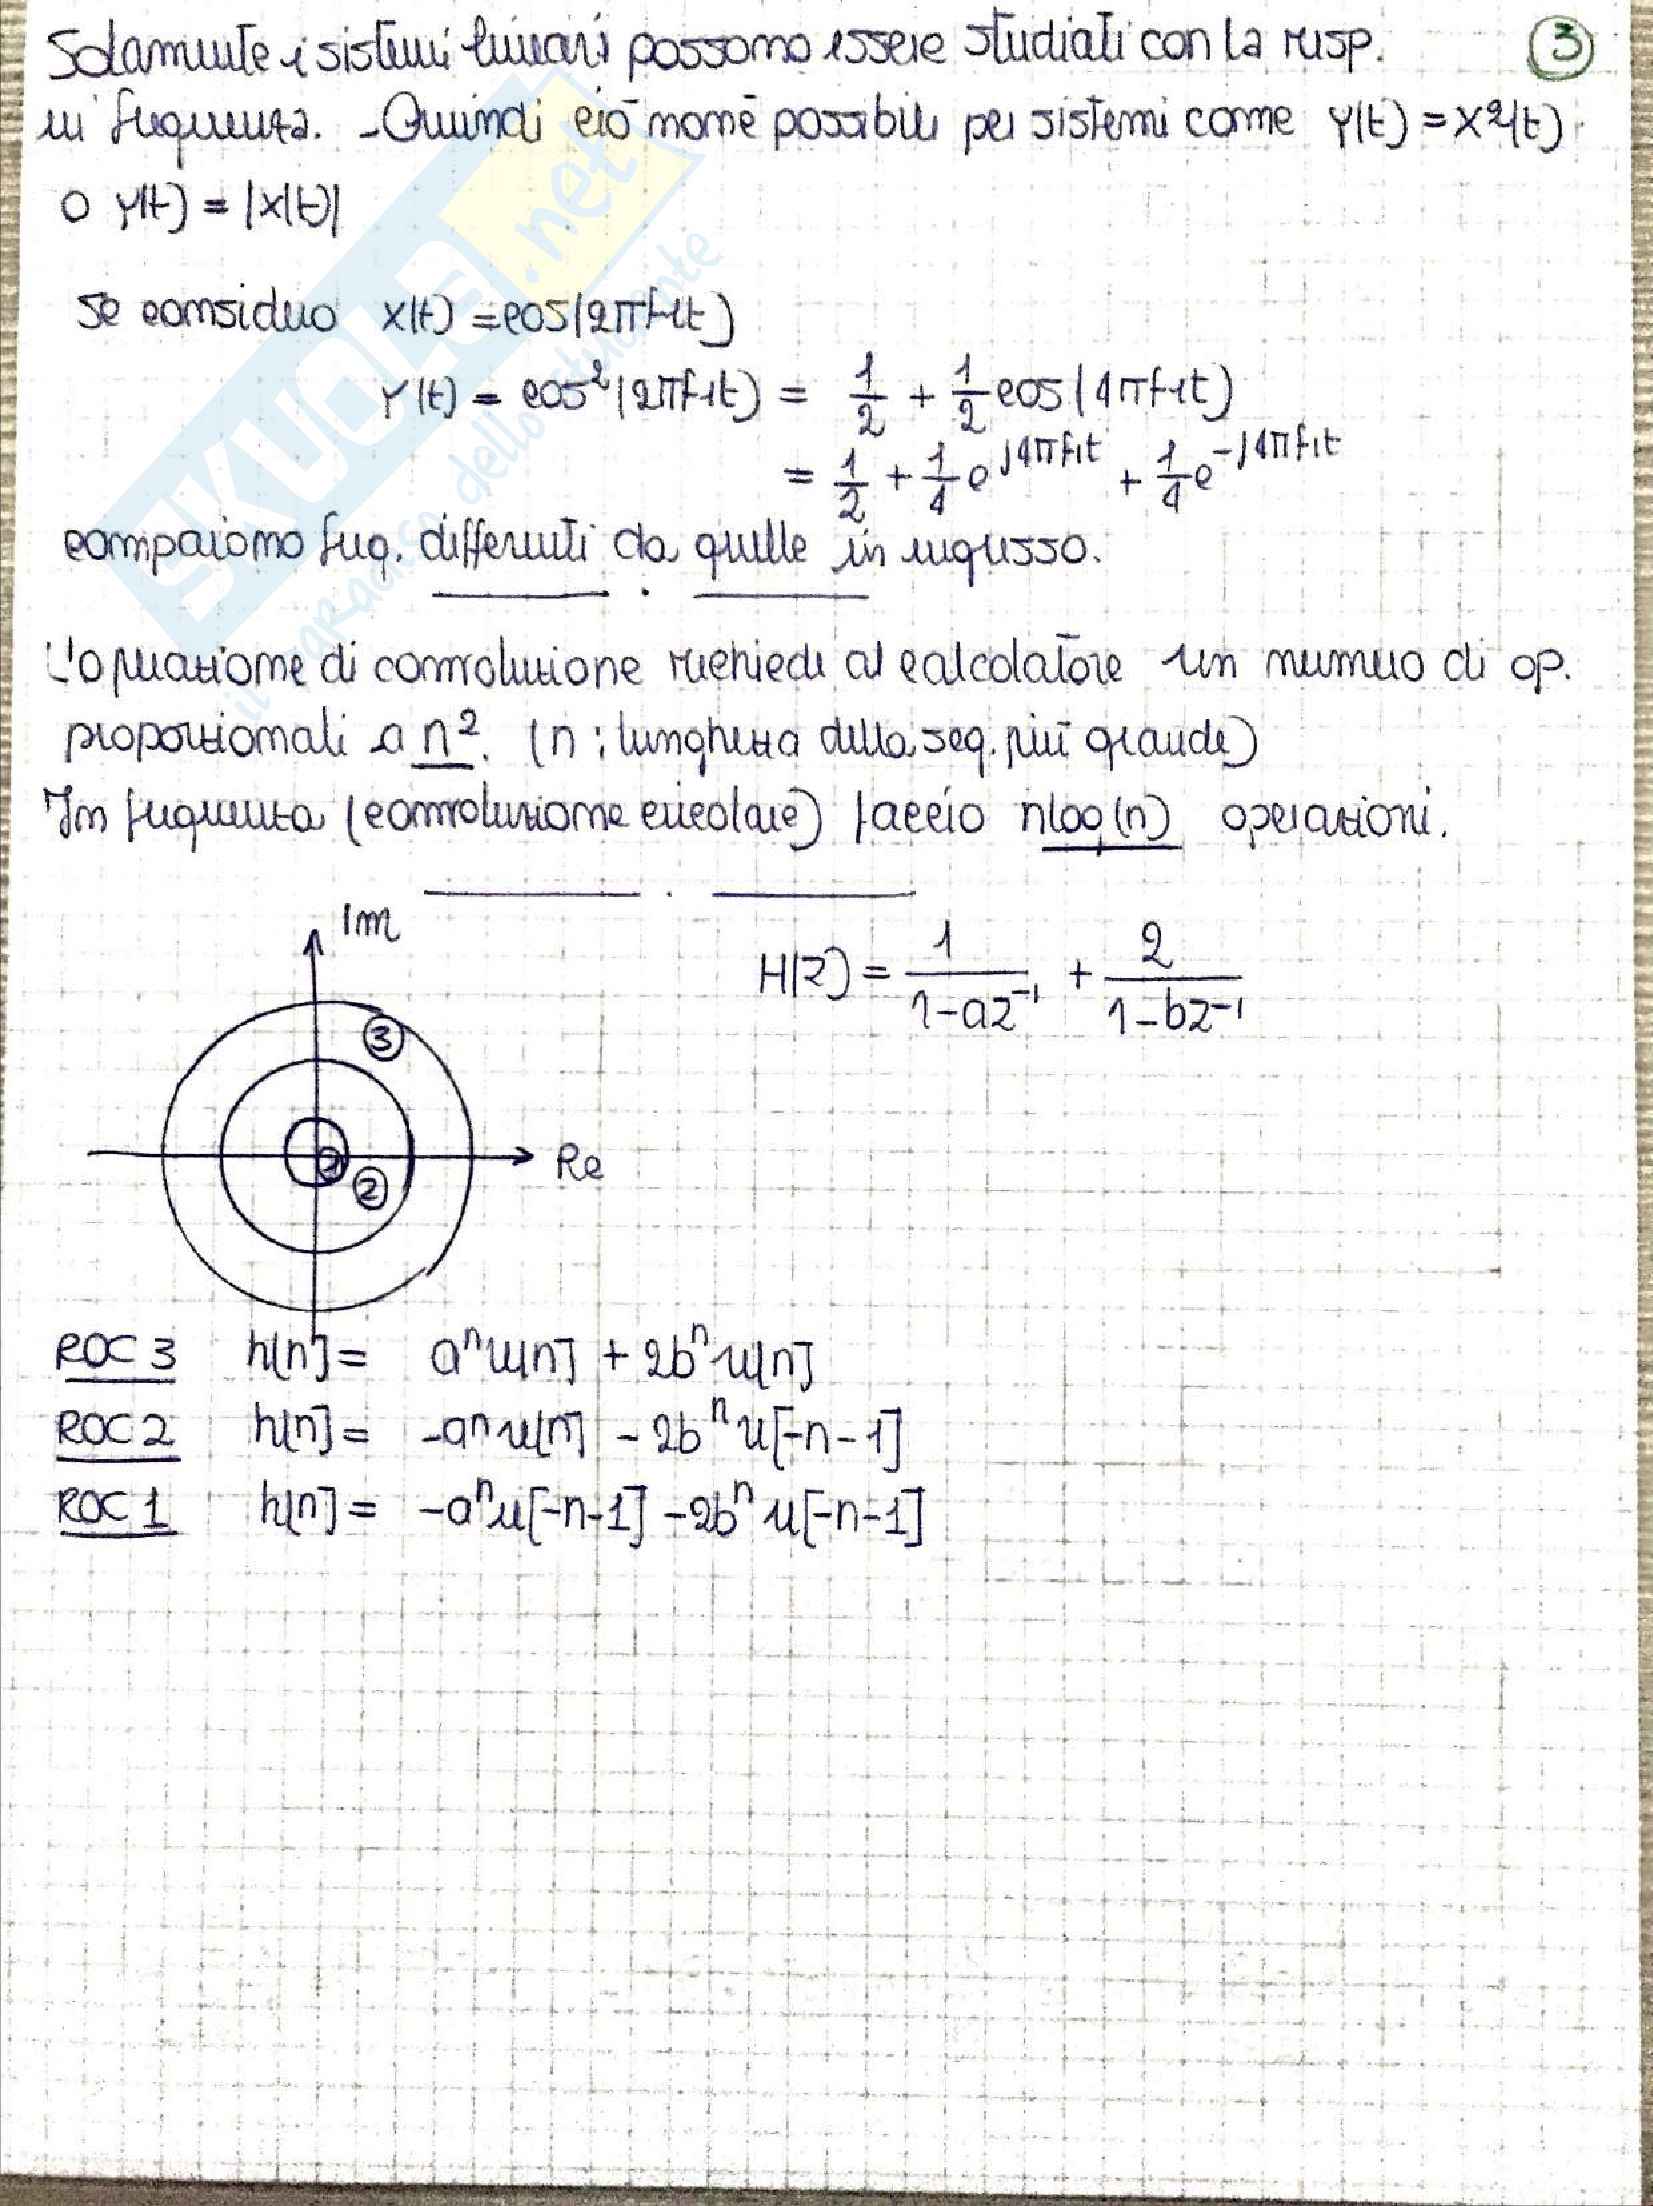 Solamente i sistemi lineari possono essere studiati con la risp. ③
in frequenza. - Quindi ciò non è possibile per sistemi come y(t) = x²(t)
o y(t) = |x(t)|
Se considero x(t) = cos(2πf₁t)
y(t) = cos²(2πf₁t) = 1/2 + 1/2 cos(4πf₁t)
= 1/2 + 1/4 e^{j4πf₁t} + 1/4 e^{-j4πf₁t}
compaiono freq. differenti da quelle in ingresso.
L'operazione di convoluzione richiede al calcolatore un numero di op.
proporzionali a n². (n: lunghezza della seq. più grande)
In frequenza (convoluzione circolare) faccio nlog(n) operazioni.
Im
H(z) = 1/(1-az⁻¹) + 2/(1-bz⁻¹)
③
Re
②
ROC 3 h[n] = aⁿu[n] + 2bⁿu[n]
ROC 2 h[n] = -aⁿu[n] - 2bⁿu[-n-1]
ROC 1 h[n] = -aⁿu[-n-1] - 2bⁿu[-n-1]
SKUOLA.net
il paradiso dello studente